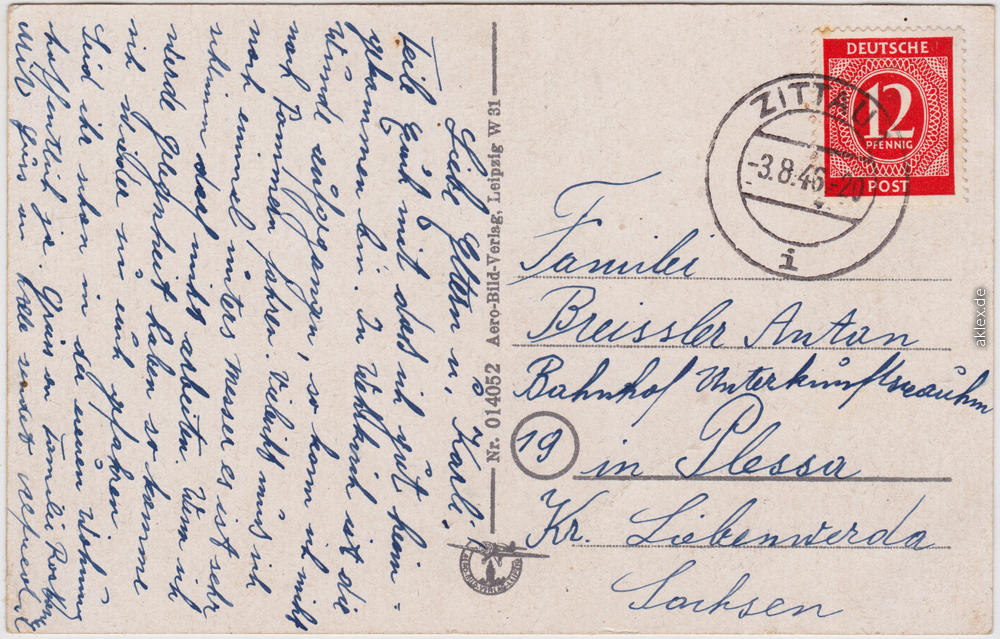 Liebe Eltern u. Karli.
Teile Euch mit das ich gut heim-
gekommen bin. In Wahrheit ist die
Wunde aufgegangen, so kann ich nicht
nach Pommern fahren. Vieleicht muß ich
noch einmal unters Messer es ist sehr
schlimm darf nicht arbeiten. Wenn ich
werde gelegenheit haben so komme
ich wieder zu euch gefahren
Seid ihr schon in der neuen Wohnung
hoffentlich ja. Gruß an Familie
Mit Gruß u. Küße sendet
Nr. 014052 Aero-Bild-Verlag, Leipzig W 31
AERO-BILD-VERLAG-LEIPZIG
DEUTSCHE
12
PFENNIG
POST
ZITTAU
-3.8.46.-20
i
Familie
Breissler Anton
Bahnhof Unterkunftsraühm
19 in Plessa
Kr. Liebenwerda
Sachsen
aklex.de